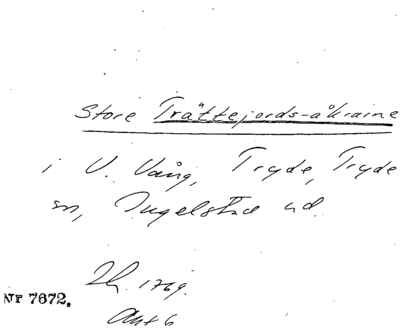 Store Trättejords-åkraine
i V. Vång, Tryde, Tryde
sn, Ingelstad hd.
Lh. 1769.
Nr 7672.
Akt 6